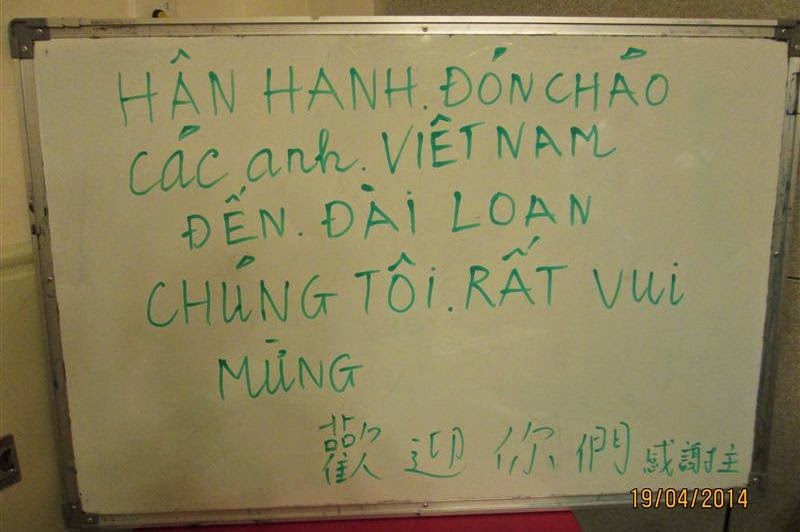 HÂN HANH. ĐÓN CHÁO
CÁC anh. VIÊT NAM
ĐẾN. ĐÀI LOAN
CHÚNG TÔI. RẤT VUI
MỪNG
歡迎你們 感謝主
19/04/2014